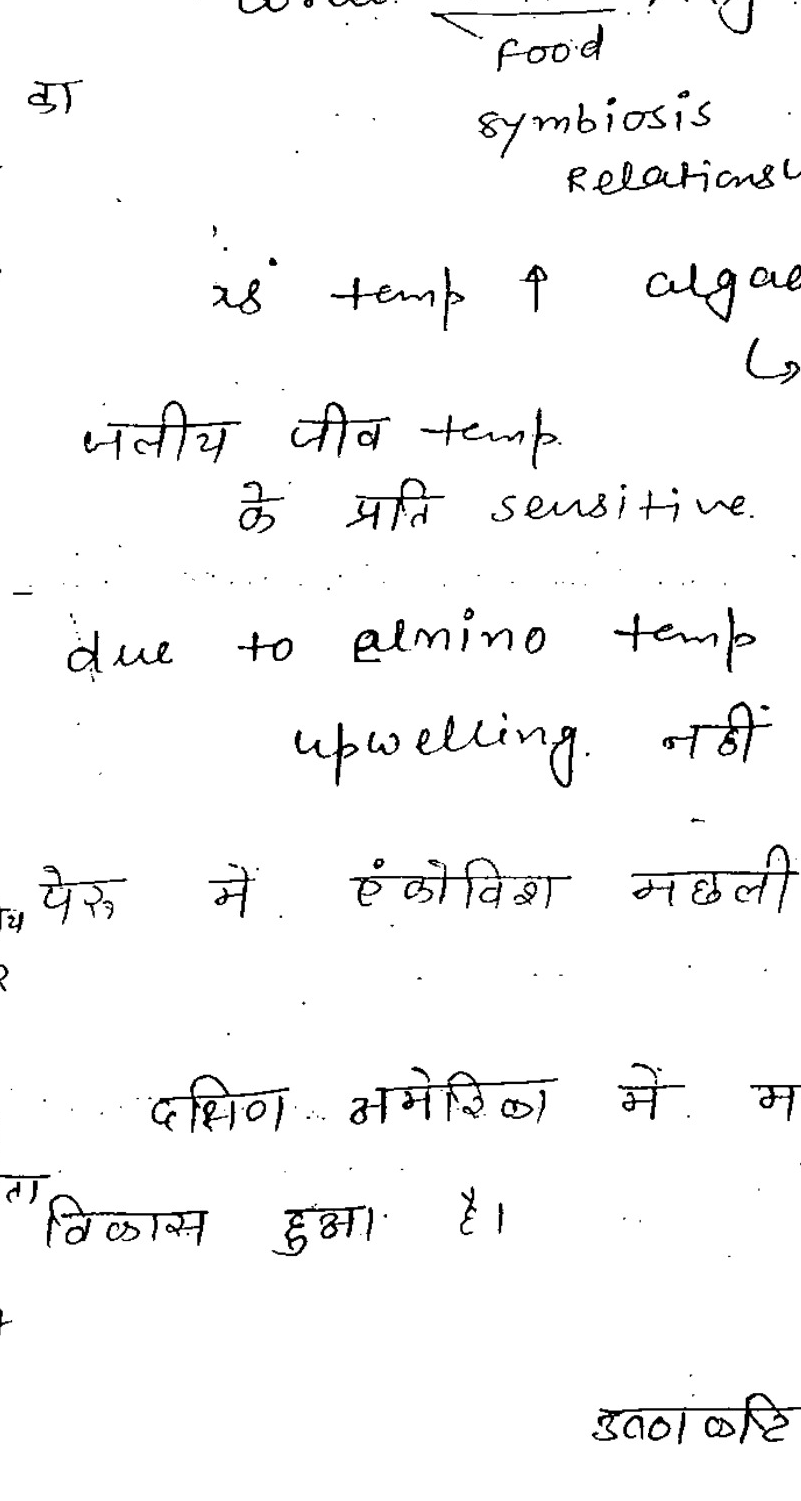 food
का
symbiosis
temp ↑ algae
जलीय जीव temp.
के प्रति sensitive.
due to elnino temp
upwelling. नहीं
पेरू में एंकोविश मछली
दक्षिण अमेरिका में म
ता विकास हुआ है।